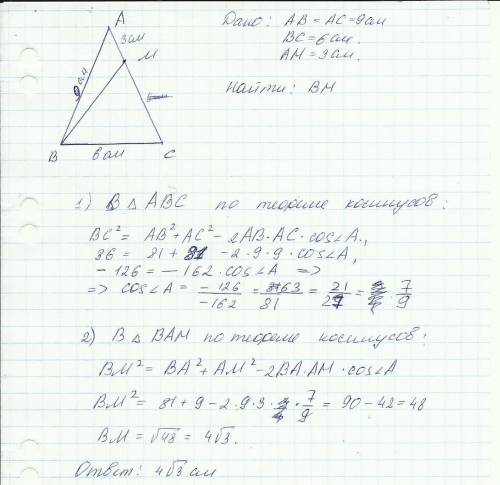 A
3 см
M
9 см
B
6 см
C
Дано: AB = AC = 9 см
BC = 6 см.
AM = 3 см.
Найти: BM
1) В △ ABC по теореме косинусов:
BC² = AB² + AC² - 2AB·AC·cos∠A.,
36 = 81 + 81 - 2·9·9·cos∠A,
-126 = -162·cos∠A ⇒
⇒ cos∠A = -126/-162 = 63/81 = 21/27 = 7/9
2) В △ BAM по теореме косинусов:
BM² = BA² + AM² - 2BA·AM·cos∠A
BM² = 81 + 9 - 2·9·3·7/9 = 90 - 42 = 48
BM = √48 = 4√3.
Ответ: 4√3 см